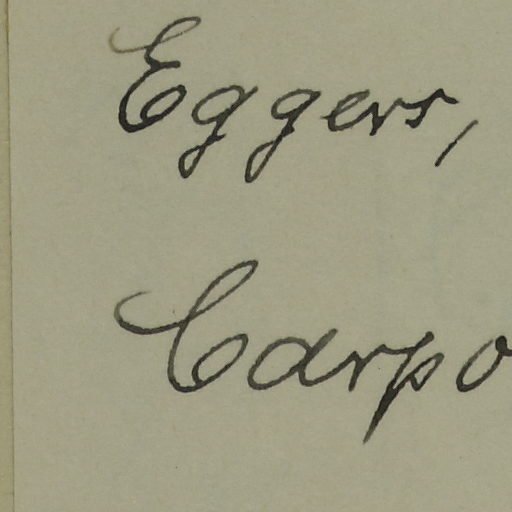 Eggers,
Carpo